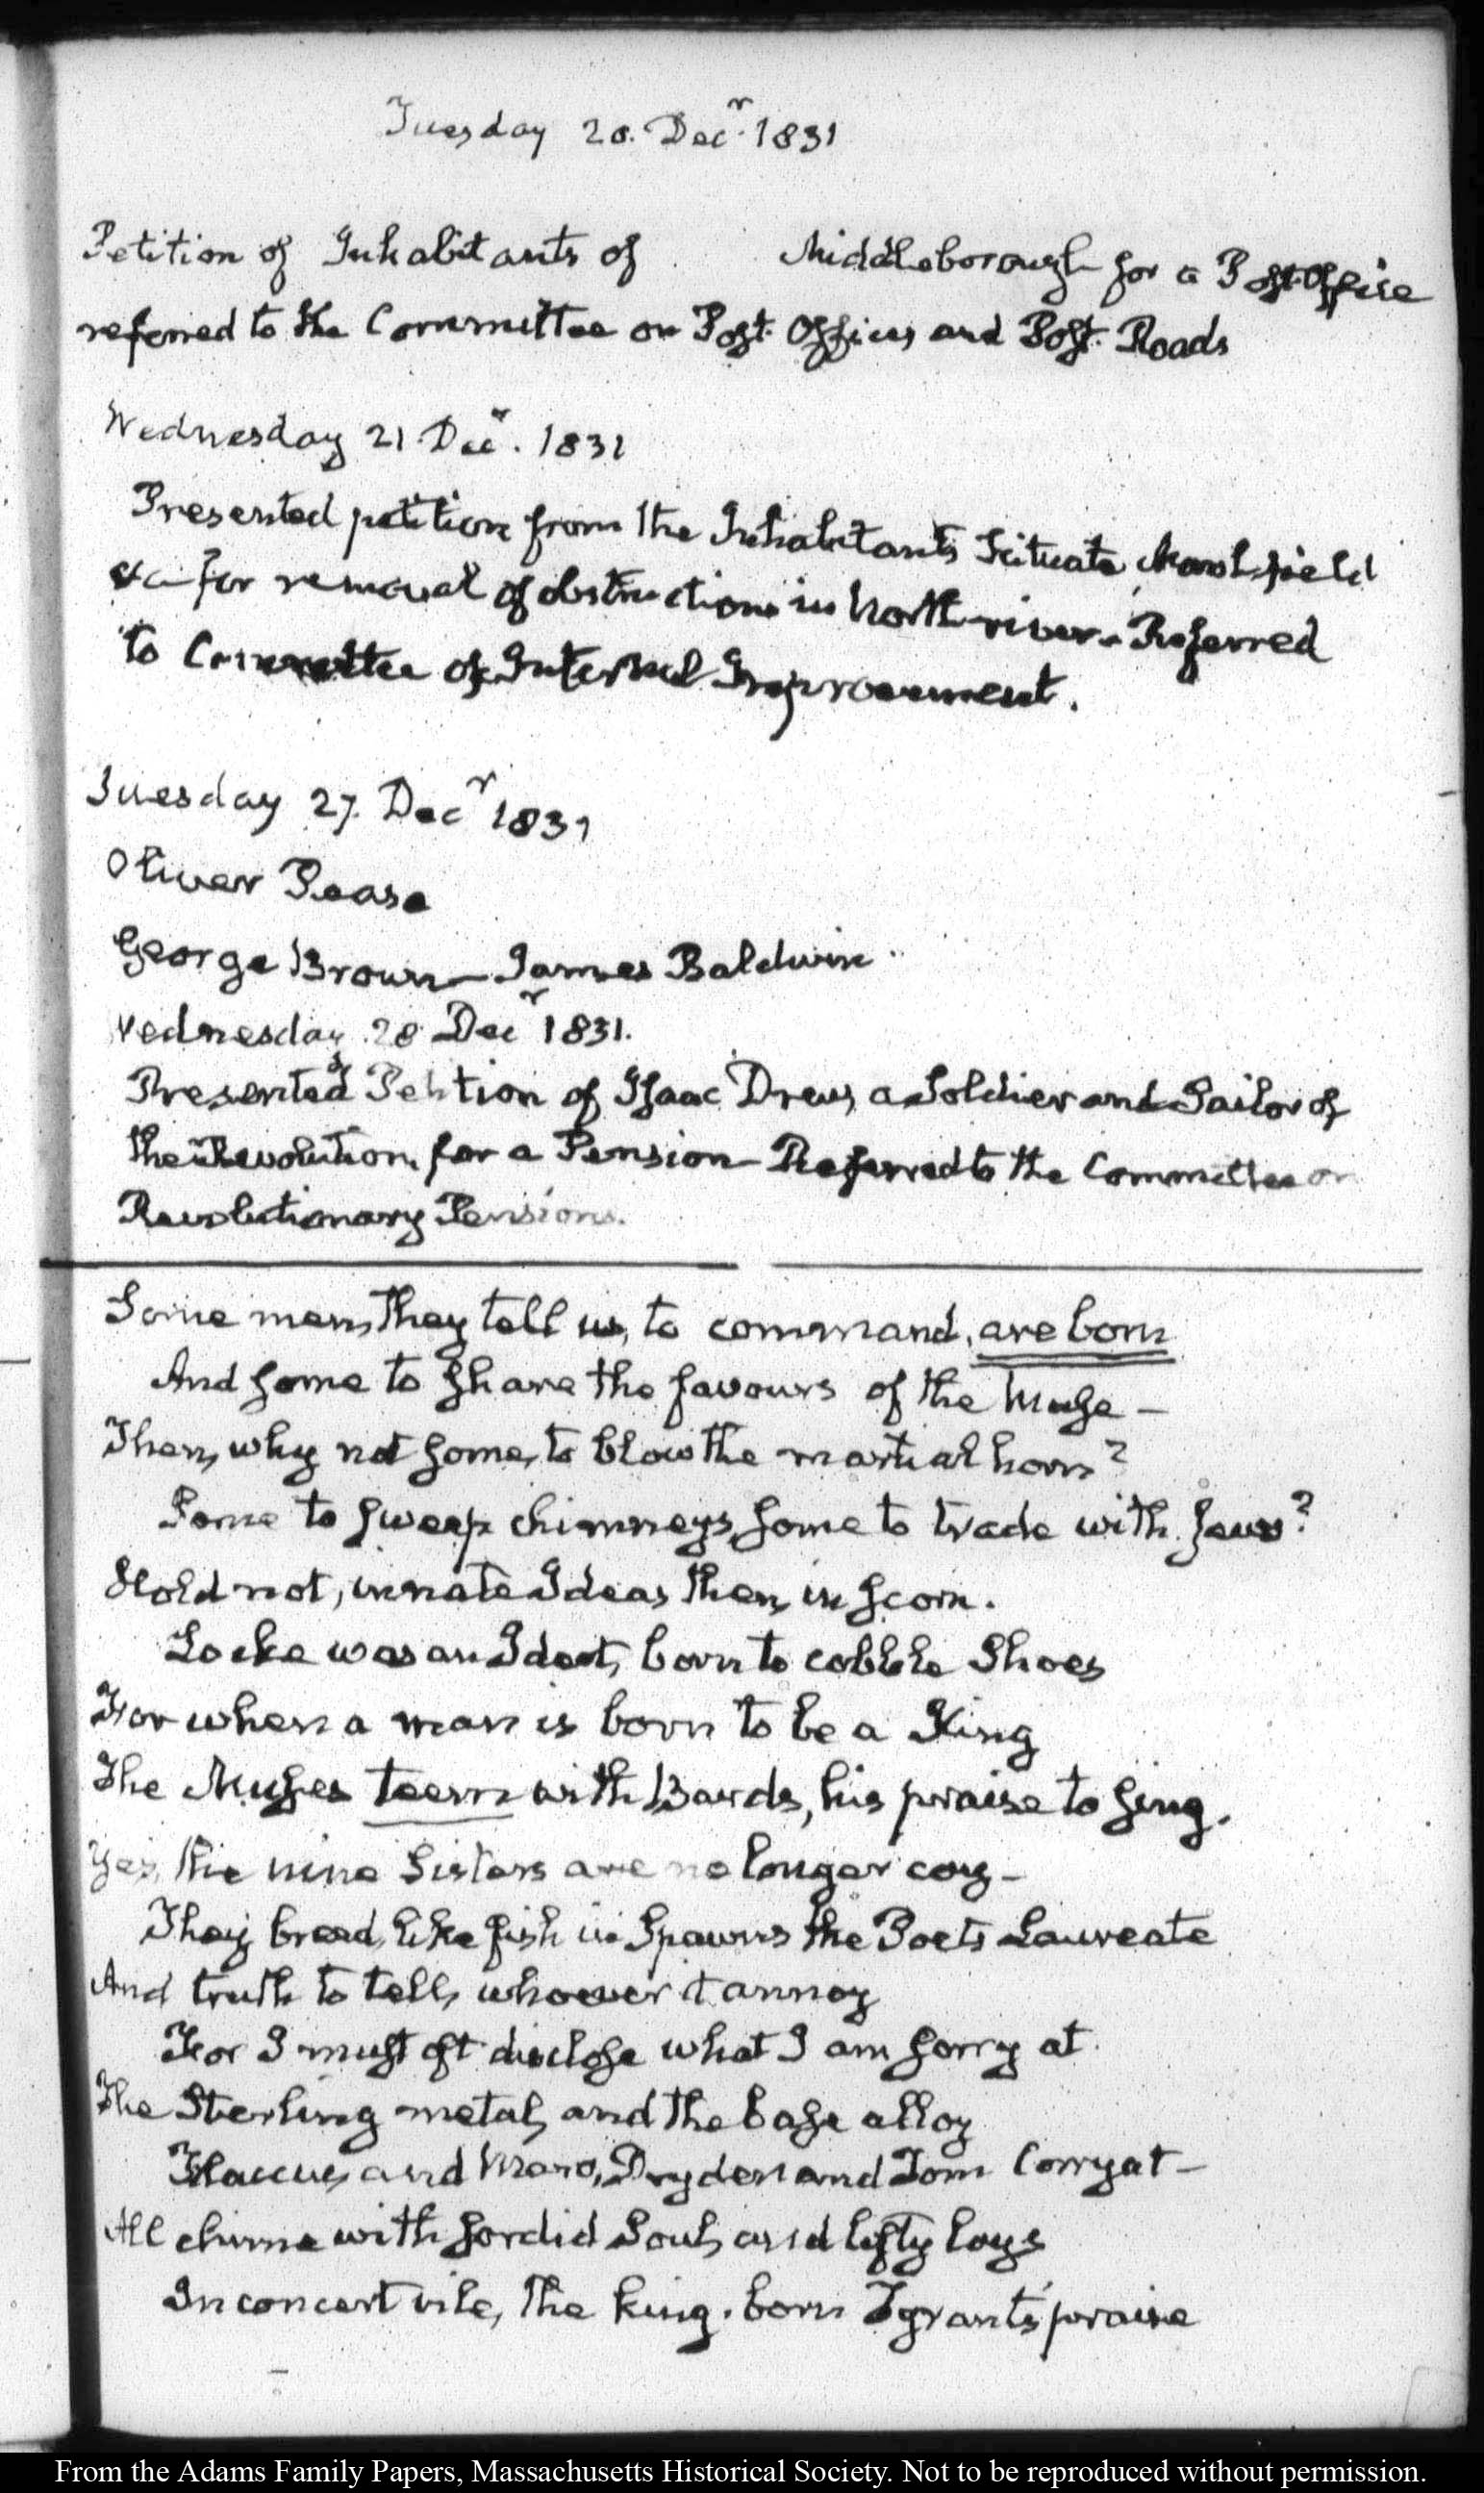 Tuesday 20. Decr. 1831
Petition of Inhabitants of Middleborough for a Post-Office
referred to the Committee on Post-Offices and Post-Roads
Wednesday 21 Decr. 1831
Presented petition from the Inhabitants Scituate, Marshfield
&c. for removal of obstructions in North-river. Referred
to Committee of Internal Improvement.
Tuesday 27. Decr 1831
Oliver Pease
George Brown — James Baldwin
Wednesday 28 Decr 1831.
Presented Petition of Isaac Drew, a Soldier and Sailor of
the Revolution, for a Pension — Referred to the Committee on
Revolutionary Pensions.
Some men, they tell us, to command, are born
And some to share the favours of the Muse —
Then, why not some, to blow the martial horn?
Some to sweep chimneys, some to trade with Jews?
Hold not, innate Ideas then, in scorn.
Locke was an Ideot, born to cobble Shoes
For when a man is born to be a King
The Muses teem with Bards, his praise to sing.
Yes, the nine Sisters are no longer coy —
They breed, like fish in Spawns the Poets Laureate
And truth to tell, whoever it annoy
For I must oft disclose what I am sorry at
The Sterling metal, and the base alloy
Flaccus, and Maro, Dryden and Tom Corryat —
All chime with sordid Souls and lofty lays
In concert vile, the king-born Tyrant's praise
From the Adams Family Papers, Massachusetts Historical Society. Not to be reproduced without permission.